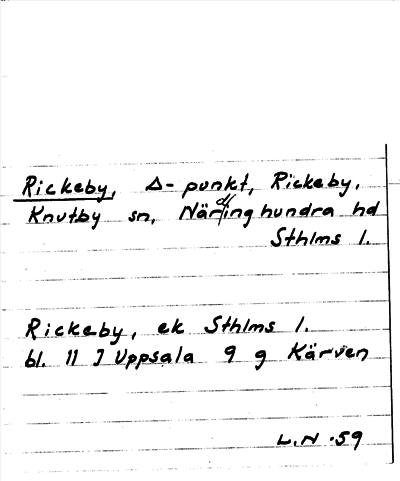 Rickeby, Δ-punkt, Rickeby,
Knutby sn, Närdinghundra hd
Sthlms l.
Rickeby, ek Sthlms l.
bl. 11 I Uppsala 9 g Kärven
L.N. 59